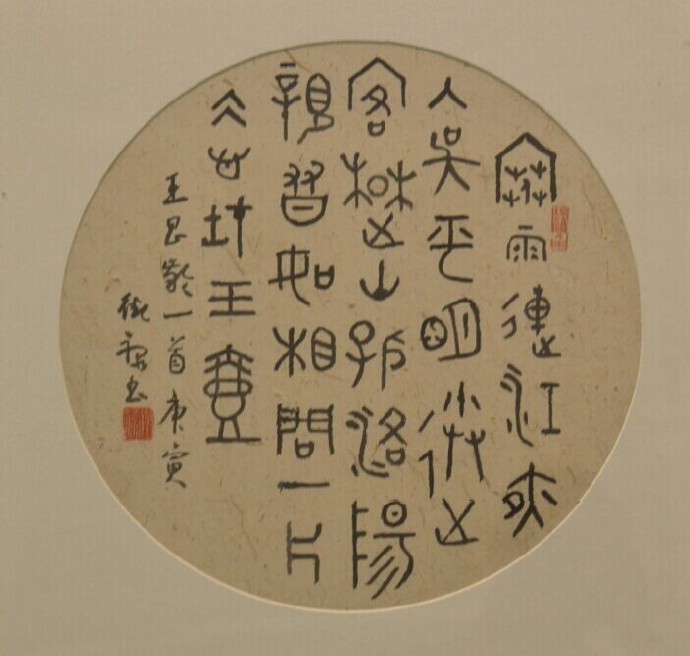 寒雨連江夜
入吳平明送
客楚山孤洛陽
親友如相問一片
冰心在玉壺
王昌齡一首庚寅
書